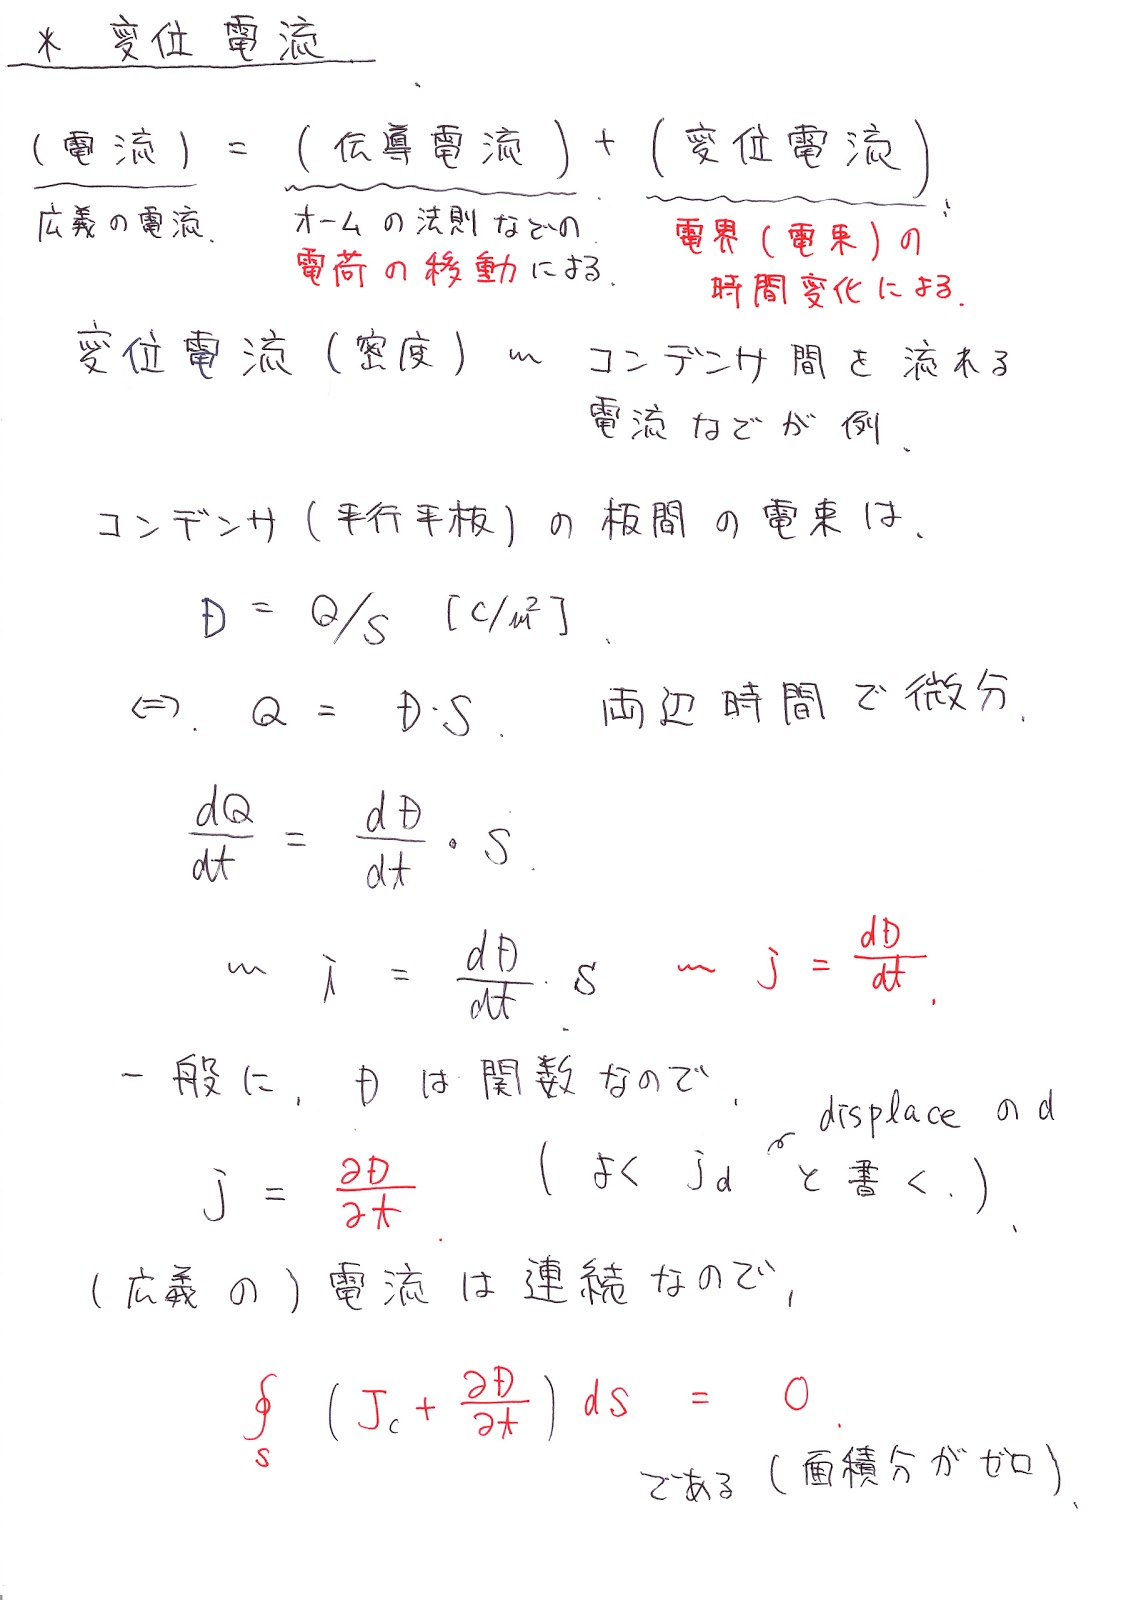 * 変位電流
(電流) = (伝導電流) + (変位電流)
広義の電流. オームの法則などの 電界(電束)の
電荷の移動による. 時間変化による.
変位電流(密度) 〜 コンデンサ間を流れる
電流などが例.
コンデンサ(平行平板)の板間の電束は、
D = Q/S [C/m²].
⇔. Q = D・S. 両辺時間で微分.
dQ/dt = dD/dt・S.
〜 i = dD/dt・S 〜 j = dD/dt.
一般に、Dは関数なので、
displaceのd
j = ∂D/∂t. (よくjdと書く.).
(広義の)電流は連続なので、
∮S (Jc + ∂D/∂t) dS = 0.
である(面積分がゼロ).